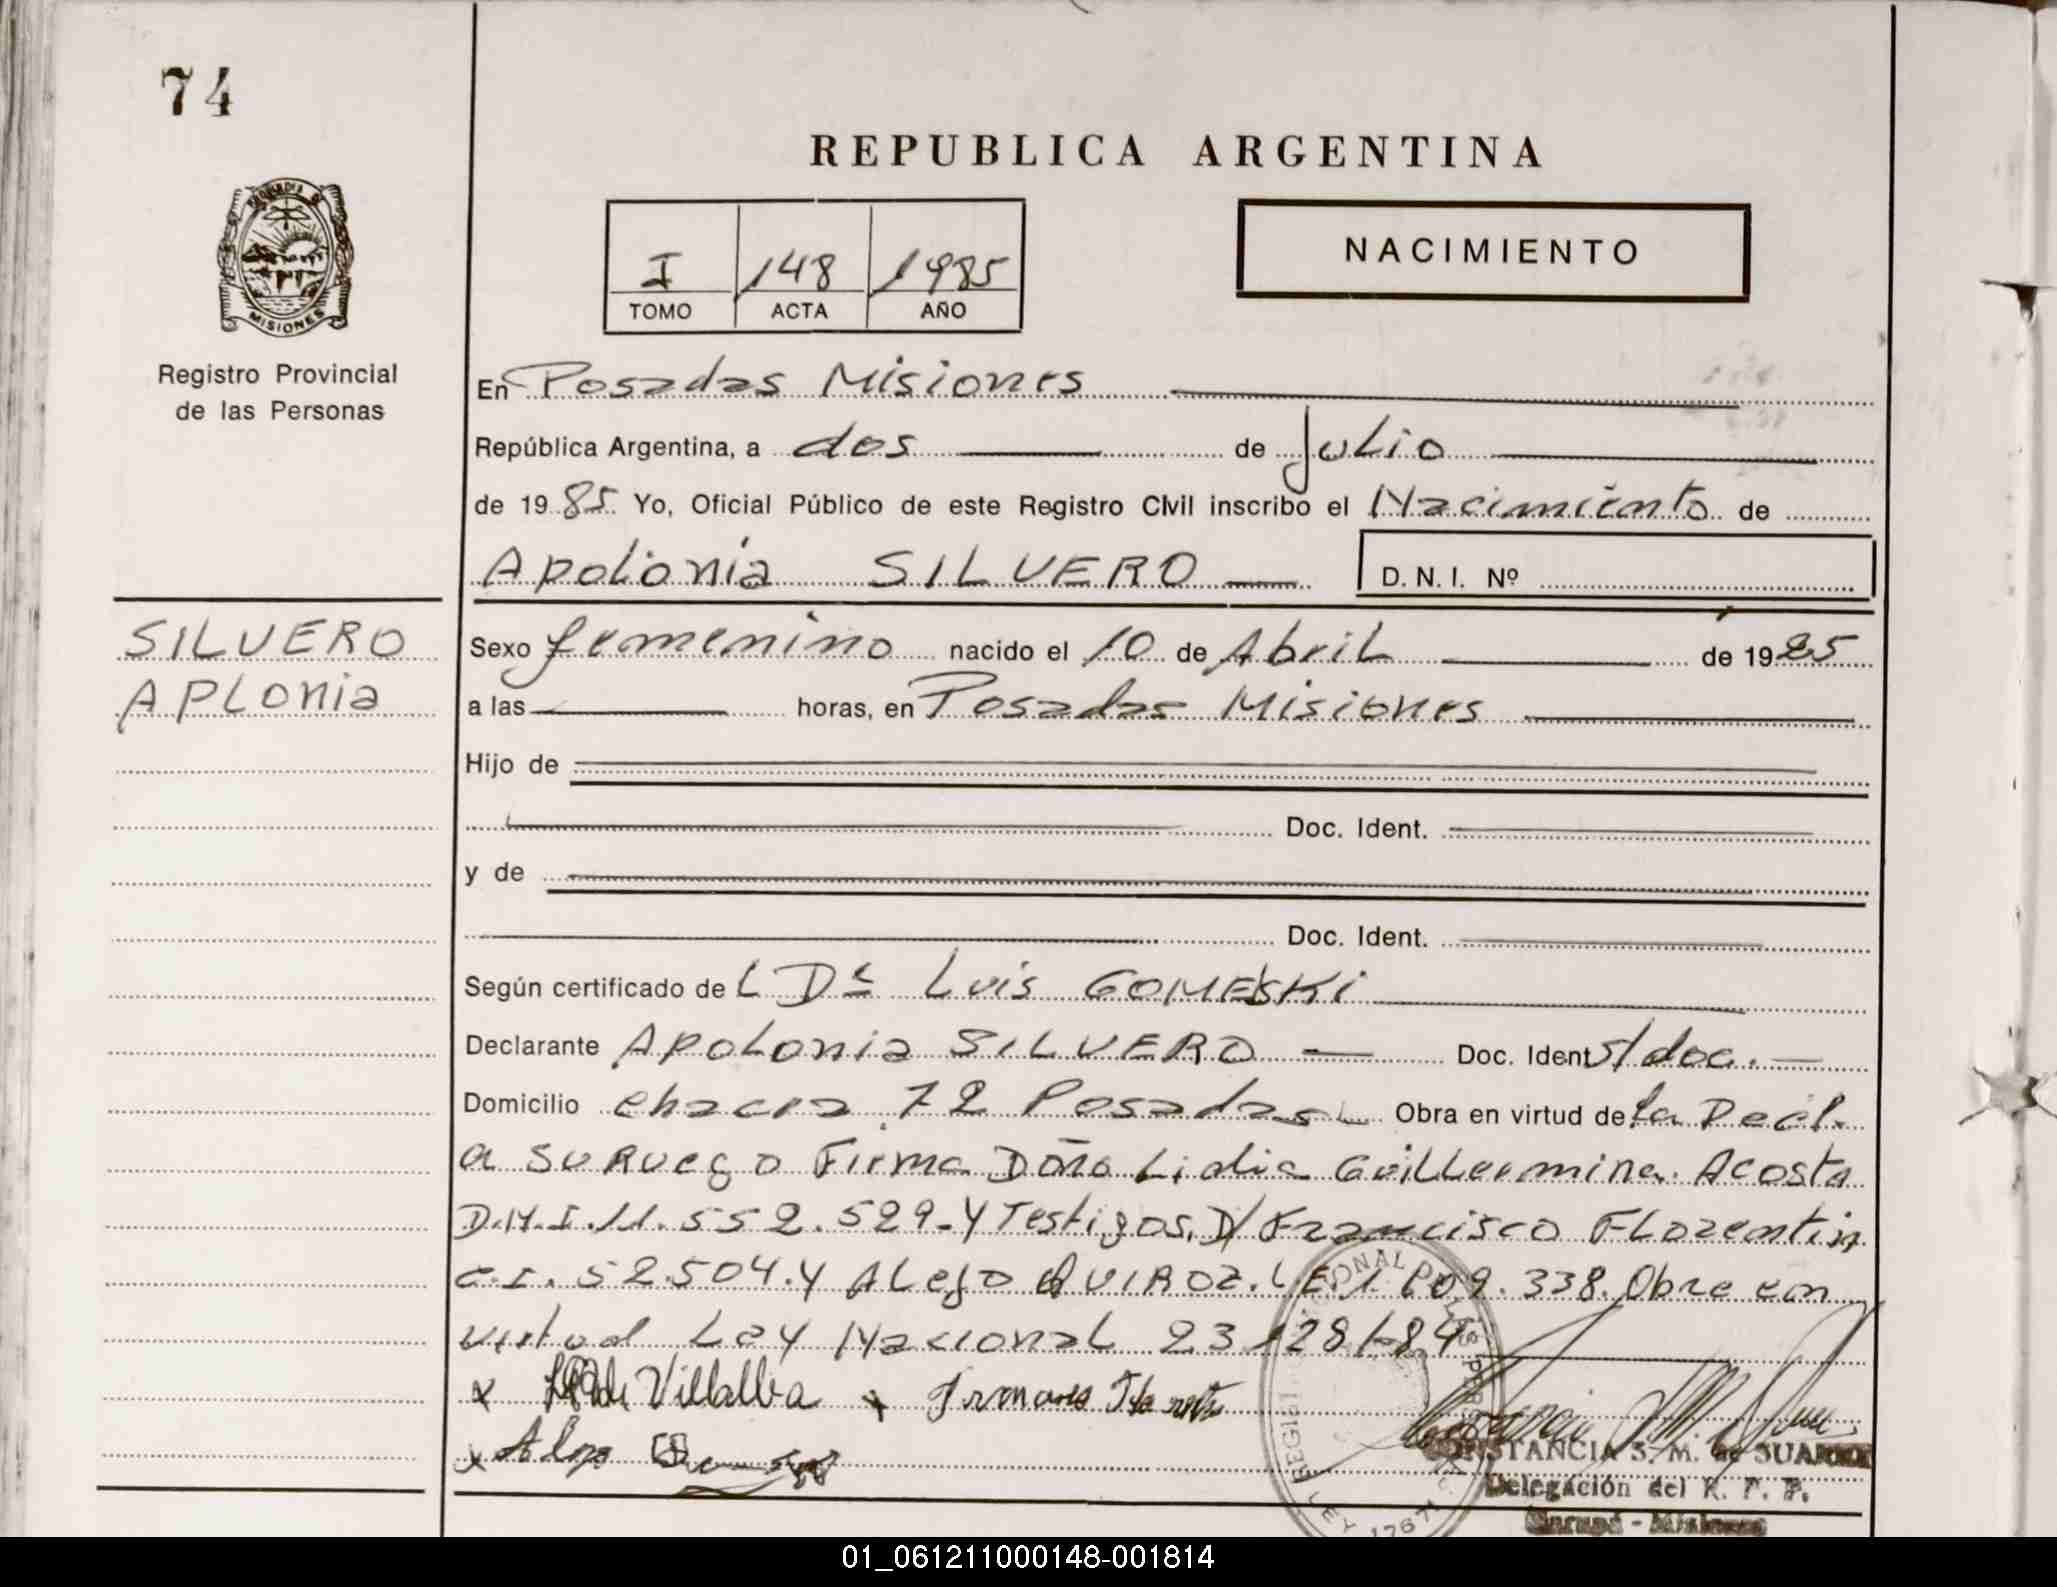 74
REPUBLICA ARGENTINA
PROVINCIA DE
MISIONES
Registro Provincial
de las Personas
I 148 1985
TOMO ACTA AÑO
NACIMIENTO
En Posadas Misiones
República Argentina, a dos de Julio
de 1985 Yo, Oficial Público de este Registro Civil inscribo el Nacimiento de
Apolonia SILVERO D.N.I. Nº
SILVERO
APLonia
Sexo femenino nacido el 10 de Abril de 1925
a las horas, en Posadas Misiones
Hijo de
Doc. Ident.
y de
Doc. Ident.
Según certificado de L Dr Luis GOMESKi
Declarante APOLonia SILVERO Doc. Ident S/doc.
Domicilio chacra 72 Posadas Obra en virtud de la Decl.
a su Ruego Firma Doña Lidia Guillermina Acosta
D.N.I. 11.552.529-Y Testigos, D/ Francisco Florentin
C.I. 52.504.Y ALejo QUIROZ. L.E. 1.609.338. Obra en
virtud Ley Nacional 23.128/-84
x de Villalba x
x
REGIST ONAL DE LAS PERSON
LEY 1767
CONSTANCIA S. M. de SUAREZ
Delegación del R. P. P.
Garupá - Misiones
01_061211000148-001814